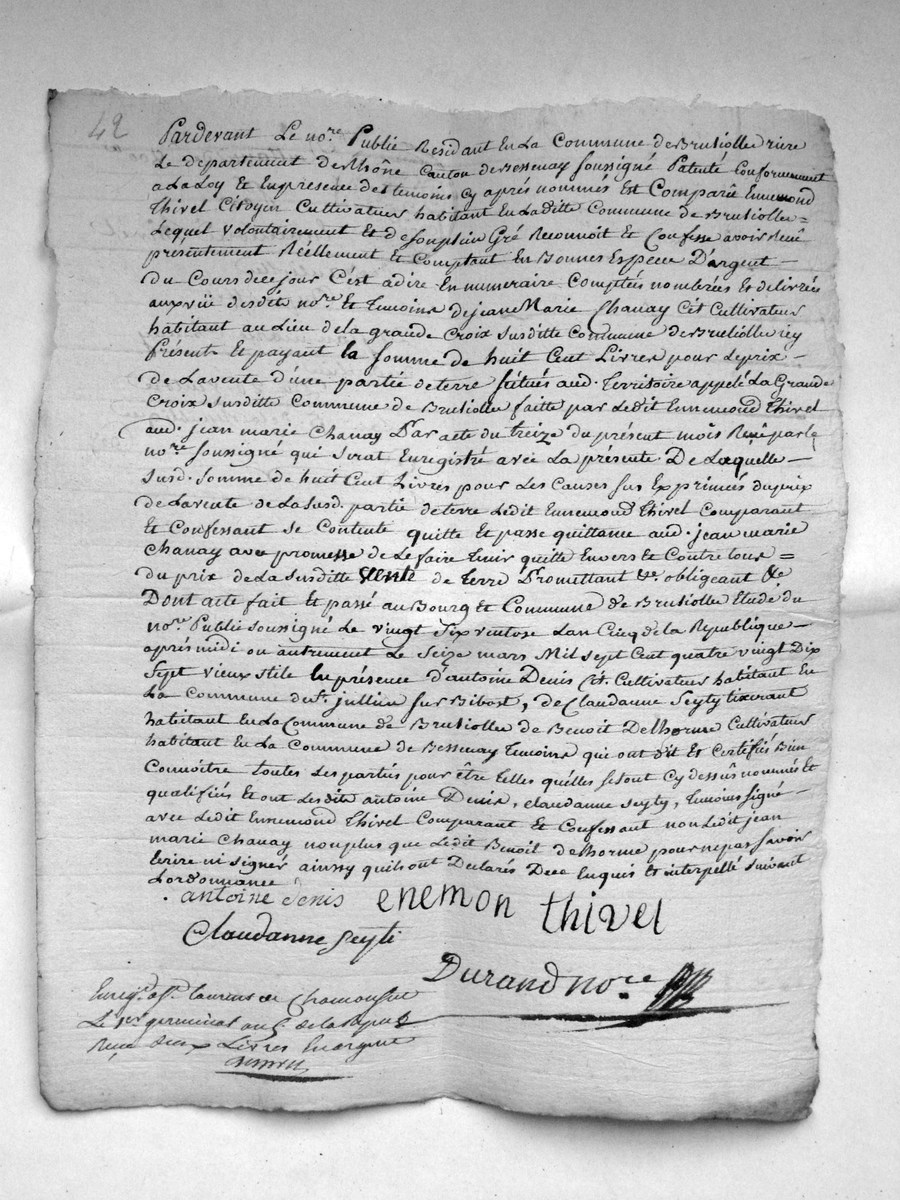 42
Pardevant Le no.re Public Residant En La Commune de Brusiolle riere
Le departement de Rhône Canton de Bessenay soussigné Patenté Conformement
a La Loy Et En presence des temoins cy aprés nommés Est Comparû Ennemond
Thivel Citoyin Cultivateur habitant En Laditte Commune de Brusiolle =
Lequel volontairement Et de son plein Gré Reconnoit et Confesse avoir Reçû
présentement Réellement et Comptant En Bonnes Espece D'argent –
du Cours de ce jour C'est adire En numeraire Comptées nombrées Et delivrées
aux vüe desdits no.re Et temoins de jean Marie Chanay Cit Cultivateur
habitant au Lieu de la grande Croix susditte Commune de Brusiolle icy
Présent Et payant la somme de huit Cent Livres pour Le prix –
de La vente d'une partie de terre situés aud. Territoire appelé La Grande
Croix susditte Commune de Brusiolle faitte par Ledit Ennemond Thivel
aud. jean marie Chanay Par acte du treize du présent mois Reçû par le
no.re soussigné qui serat Enregistré avec La présente. De Laquelle –
susd. somme de huit Cent Livres pour Les Causes sus Exprimées du prix
de La vente de La susd. partie de terre Ledit Ennemond Thivel Comparant
Et Confessant se Contente quitte Et passe quittance aud. jean marie
Chanay avec promesse de Le faire tenir quitte Envers et Contre tous =
du prix de La susditte vente de terre Promettant &c obligeant &c
Dont acte fait Et passé au Bourg Et Commune de Brusiolle Etude du
no.re Public soussigné Le vingt six ventose Lan Cinq de la Republique –
aprés midi ou autrement Le seize mars Mil sept Cent quatre vingt Dix
sept vieux stile En présence d'antoine Denis Cit. Cultivateur habitant En
La Commune de St. jullien sur Bibost, de Claudanne Seyty tixerant
habitant En La Commune de Brusiolle de Benoit Delhorme Cultivateur
habitant En La Commune de Bessenay temoins qui ont dit Et Certifiés Bien
Connoitre toutes Les parties pour être telles quélles se sont cy dessûs nommés Et
qualifiés et ont Lesdits antoine Denis, claudanne Seyty, temoins signé –
avec Ledit Ennemond Thivel Comparant Et Confessant non Ledit jean
marie Chanay non plus que Ledit Benoit delhorme pour ne pas savoir
Ecrire ni signér ainsy quils ont Declarés De ce Enquis Et interpellé suivant
Lordonnance
antoine denis enemon thivel
Claudanne Seyti
Durand no.re
Enreg. a St. Laurens de Chamousset
Le 1er germinal an 5 de la Repub
Reçu deux Livres En argent